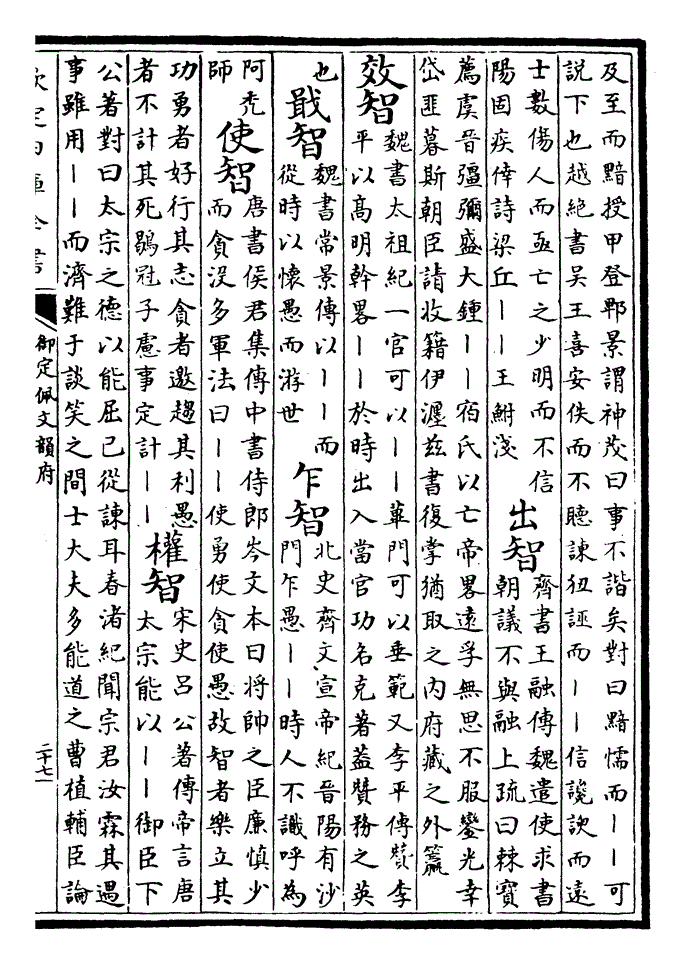 及至而黯授甲登郫景謂神茂曰事不諧矣對曰黯懦而丨丨可
說下也越絶書吳王喜安佚而不聽諫狃誣而丨丨信讒諛而遠
士數傷人而亟亡之少明而不信
陽固疾倖詩梁丘丨丨王鮒淺
出智
齊書王融傳魏遣使求書
朝議不與融上疏曰棘寶
薦虞晉疆彌盛大鍾丨丨宿氏以亡帝畧遠孚無思不服鑾光幸
岱匪暮斯朝臣請收籍伊瀍兹書復掌猶取之内府藏之外籯
效智
魏書太祖紀一官可以丨丨蓽門可以垂範又李平傳贊李
平以髙明幹畧丨丨於時出入當官功名克著蓋贊務之英
也
戢智
魏書常景傳以丨丨而
從時以懷愚而游世
乍智
北史齊文宣帝紀晉陽有沙
門乍愚丨丨時人不識呼為
阿禿
師
使智
唐書侯君集傳中書侍郎岑文本曰將帥之臣廉慎少
而貪沒多軍法曰丨丨使勇使貪使愚故智者樂立其
功勇者好行其志貪者邀趨其利愚
者不計其死鶡冠子慮事定計丨丨
權智
宋史呂公著傳帝言唐
太宗能以丨丨御臣下
公著對曰太宗之德以能屈己從諫耳春渚紀聞宗君汝霖其遇
事雖用丨丨而濟難于談笑之間士大夫多能道之曹植輔臣論
欽定四庫全書
御定佩文韻府
二十七